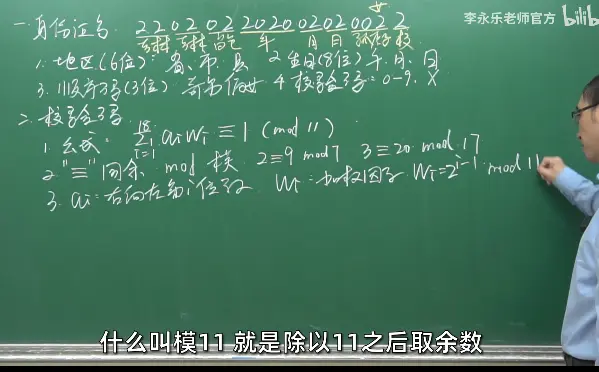 李永乐老师官方 bilib
一.身份证号 220202202002020022
女
吉林 吉林 昌邑 年 月 日 顺序 校
1. 地区(6位): 省、市、县 2. 生日(8位) 年、月、日
3. 顺序号(3位) 奇男偶女 4. 校验号: 0-9. X
二. 校验号
1. 公式: 18 Σ i=1 aiWi ≡ 1 (mod 11)
2. "≡" 同余 mod 模 2≡9 mod 7 3≡20 mod 17
3. ai: 右向左第i位数 Wi: 加权因子 Wi=2^(i-1) mod 11
什么叫模11 就是除以11之后取余数